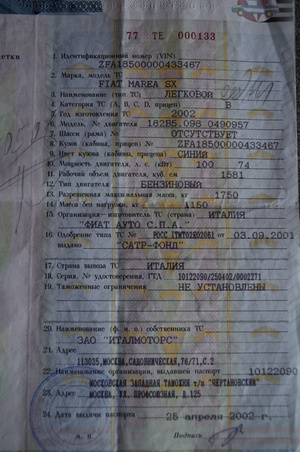 77 ТЕ 000133
1. Идентификационный номер (VIN)
ZFA18500000433467
2. Марка, модель ТС
FIAT MAREA SX
3. Наименование (тип ТС) ЛЕГКОВОЙ
4. Категория ТС (А, В, С, D, прицеп) В
5. Год изготовления ТС 2002
6. Модель, № двигателя 182B5.098 0490957
7. Шасси (рама) № ОТСУТСТВУЕТ
8. Кузов (кабина, прицеп) № ZFA18500000433467
9. Цвет кузова (кабины, прицепа) СИНИЙ
10. Мощность двигателя, л. с. (кВт) 100 74
11. Рабочий объем двигателя, куб. см 1581
12. Тип двигателя БЕНЗИНОВЫЙ
13. Разрешенная максимальная масса, кг 1750
14. Масса без нагрузки, кг 1150
15. Организация—изготовитель ТС (страна) ИТАЛИЯ
"ФИАТ АУТО С.П.А."
16. Одобрение типа ТС № РОСС IТМТ02Е02061 от 03.09.2001
выдано "САТР-ФОНД"
17. Страна вывоза ТС ИТАЛИЯ
18. Серия, № удостоверения, ГТД 10122090/250402/0002271
19. Таможенные ограничения НЕ УСТАНОВЛЕНЫ
20. Наименование (ф. и. о.) собственника ТС
ЗАО "ИТАЛМОТОРС"
21. Адрес
113035, МОСКВА, САДОВНИЧЕСКАЯ, 76/71, С.2
22. Наименование организации, выдавшей паспорт 10122090
МОСКОВСКАЯ ЗАПАДНАЯ ТАМОЖНЯ т/п "ЧЕРТАНОВСКИЙ"
23. Адрес МОСКВА, УЛ. ПРОФСОЮЗНАЯ, Д.125
24. Дата выдачи паспорта 25 апреля 2002 г.
М. П. Подпись